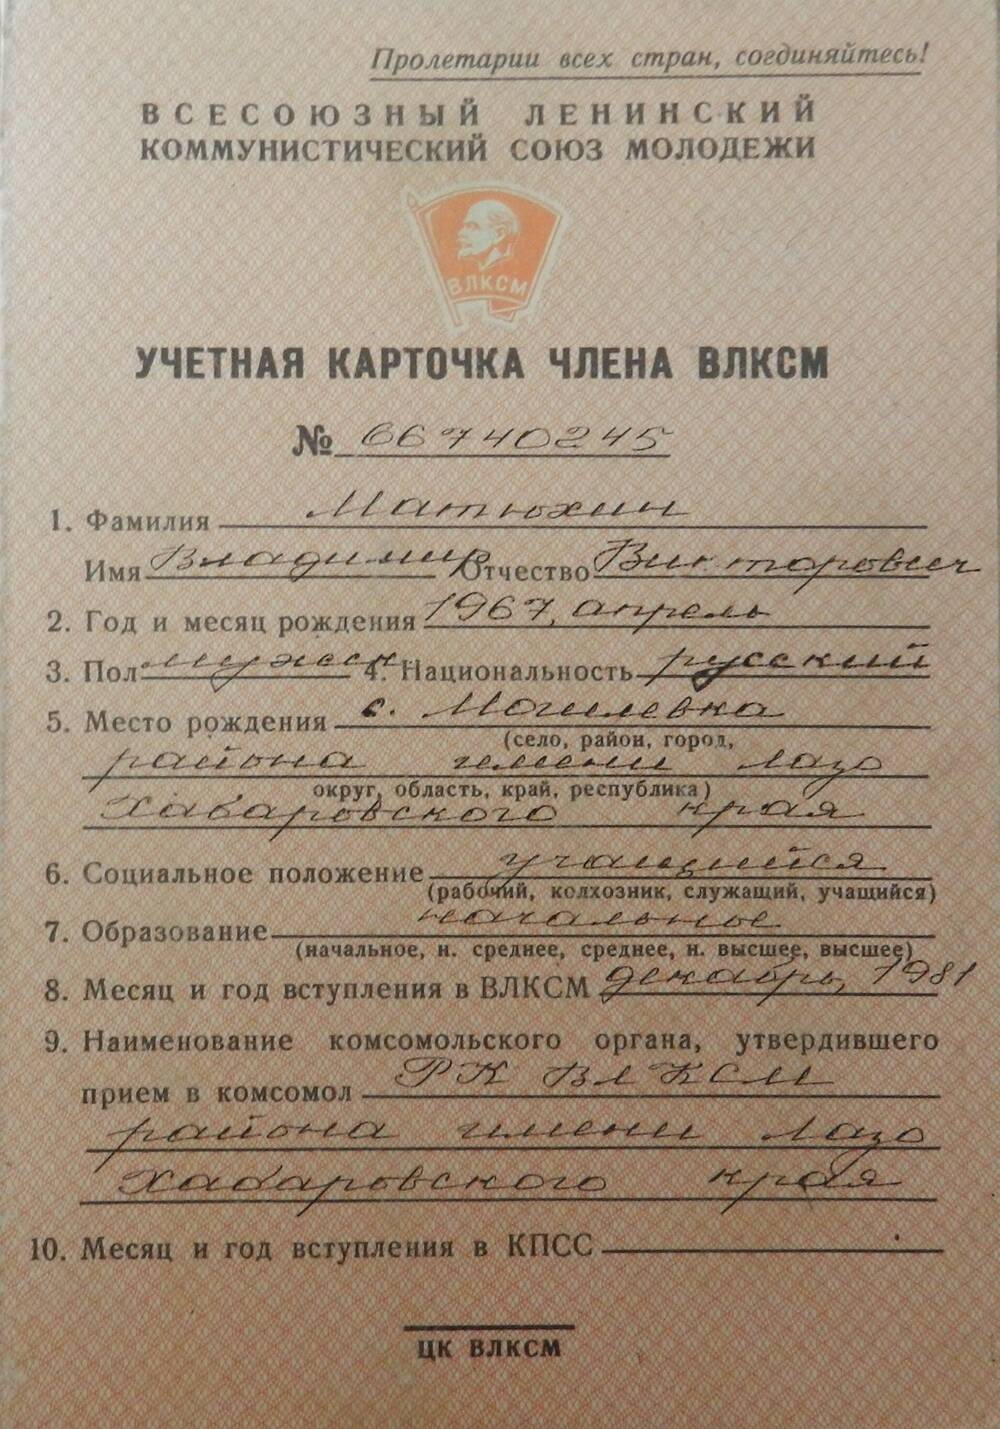 Пролетарии всех стран, соединяйтесь!
ВСЕСОЮЗНЫЙ ЛЕНИНСКИЙ
КОММУНИСТИЧЕСКИЙ СОЮЗ МОЛОДЕЖИ
ВЛКСМ
УЧЕТНАЯ КАРТОЧКА ЧЛЕНА ВЛКСМ
№ 66740245
1. Фамилия Матюхин
Имя Владимир Отчество Викторович
2. Год и месяц рождения 1967, апрель
3. Пол мужск. 4. Национальность русский
5. Место рождения с. Могилевка
(село, район, город,
района имени Лазо
округ, область, край, республика)
Хабаровского края
6. Социальное положение учащийся
(рабочий, колхозник, служащий, учащийся)
7. Образование начальное
(начальное, н. среднее, среднее, н. высшее, высшее)
8. Месяц и год вступления в ВЛКСМ декабрь, 1981
9. Наименование комсомольского органа, утвердившего
прием в комсомол РК ВЛКСМ
района имени Лазо
Хабаровского края
10. Месяц и год вступления в КПСС
ЦК ВЛКСМ